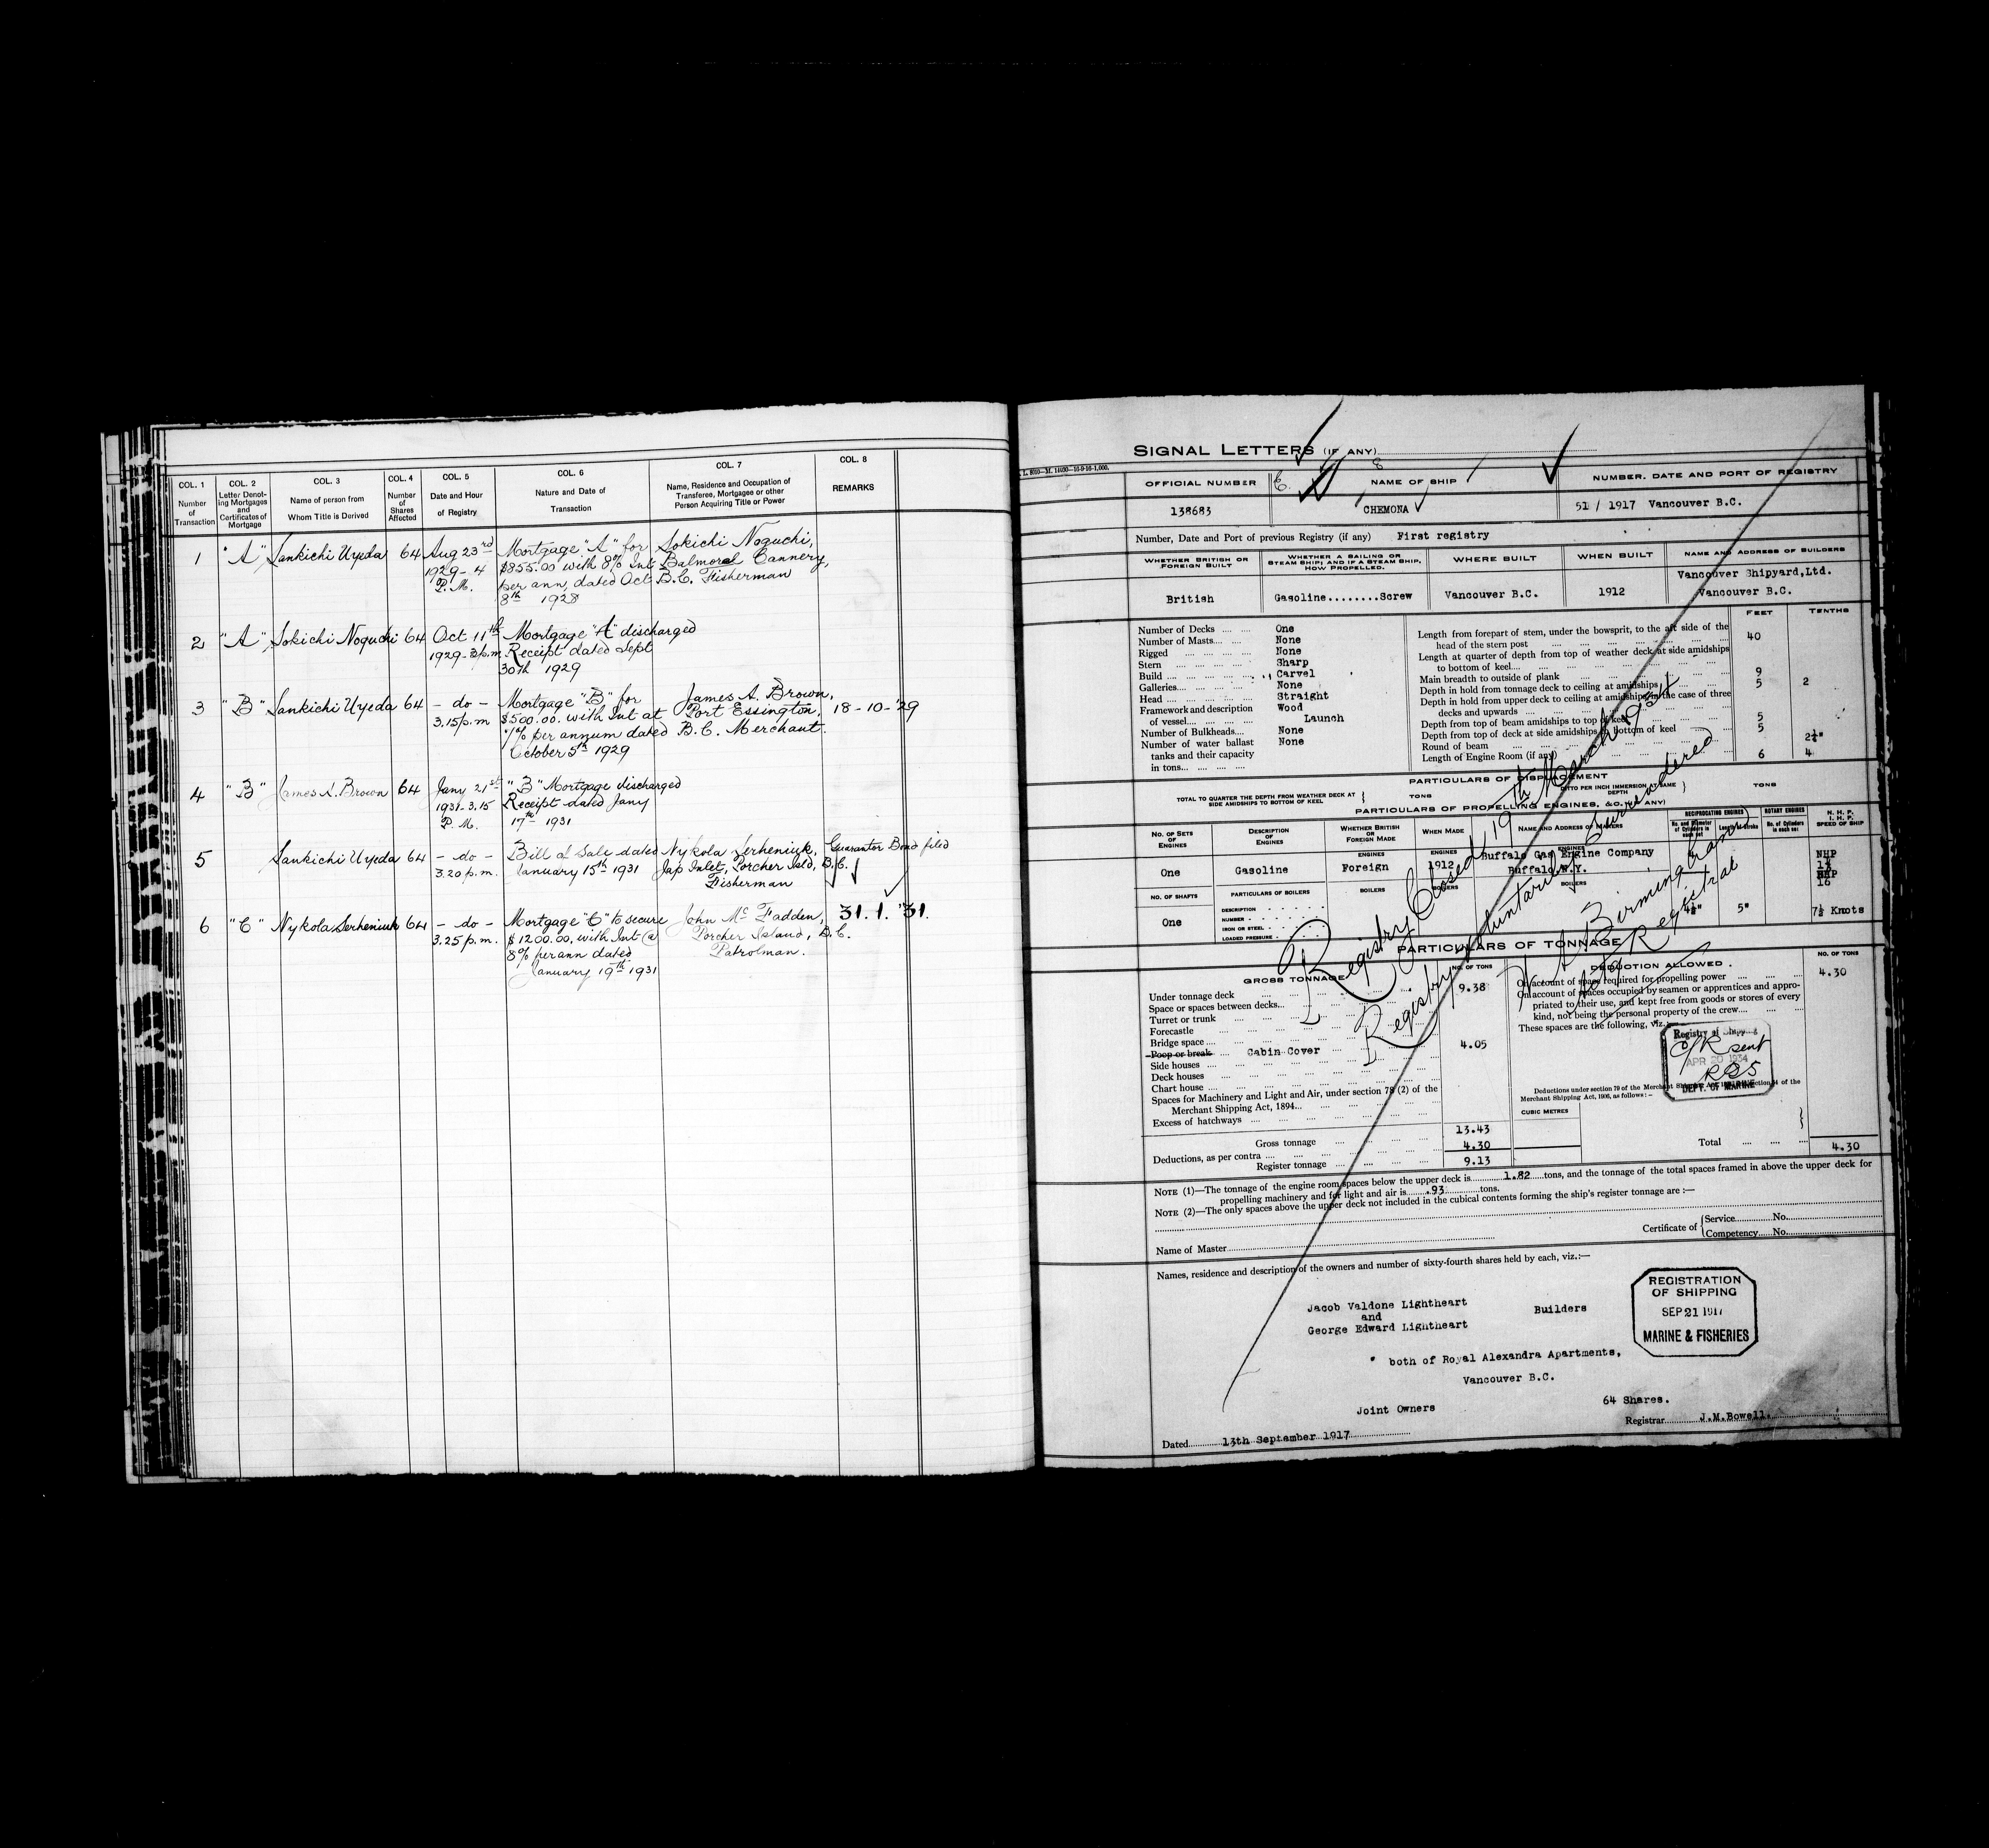 COL. 1
Number
of
Transaction
COL. 2
Letter Denot-
ing Mortgages
and
Certificates of
Mortgage
COL. 3
Name of person from
Whom Title is Derived
COL. 4
Number
of
Shares
Affected
COL. 5
Date and Hour
of Registry
COL. 6
Nature and Date of
Transaction
COL. 7
Name, Residence and Occupation of
Transferee, Mortgagee or other
Person Acquiring Title or Power
COL. 8
REMARKS
1 "A" Sankichi Uyeda 64 Aug 23rd Mortgage "A" for Sokichi Noguchi,
1929 - 4 $855.00 with 8% Int Balmoral Cannery,
P.M. per ann, dated Oct B.C. Fisherman
8th 1928
2 "A" Sokichi Noguchi 64 Oct 11th Mortgage "A" discharged
1929 - 3 p.m. Receipt dated Sept
30th 1929
3 "B" Sankichi Uyeda 64 - do - Mortgage "B" for James A. Brown,
3.15 p.m $500.00. with Int at Port Essington, 18-10-'29
7% per annum dated B.C. Merchant.
October 5th 1929
4 "B" James A. Brown 64 Jany 21st "B" Mortgage discharged
1931 - 3.15 Receipt dated Jany
P.M. 17th 1931
5 Sankichi Uyeda 64 - do - Bill of Sale dated Nykola Serheniuk, Guarantor Bond filed
3.20 p.m. January 15th 1931 Jap Inlet, Porcher Isld, B.C.
Fisherman
6 "C" Nykola Serheniuk 64 - do - Mortgage "C" to secure John McFadden, 31.1.'31.
3.25 p.m. $1200.00, with Int @ Porcher Island, B.C.
8% per ann dated Patrolman.
January 19th 1931
SIGNAL LETTERS (IF ANY)
OFFICIAL NUMBER
NAME OF SHIP
NUMBER, DATE AND PORT OF REGISTRY
138683
CHEMONA
51 / 1917 Vancouver B.C.
Number, Date and Port of previous Registry (if any) First registry
WHETHER BRITISH OR
FOREIGN BUILT
WHETHER A SAILING OR
STEAM SHIP; AND IF A STEAM SHIP,
HOW PROPELLED.
WHERE BUILT
WHEN BUILT
NAME AND ADDRESS OF BUILDERS
British
Gasoline........Screw
Vancouver B.C.
1912
Vancouver Shipyard,Ltd.
Vancouver B.C.
FEET TENTHS
Number of Decks One
Number of Masts None
Rigged None
Stern Sharp
Build Carvel
Galleries None
Head Straight
Framework and description Wood
of vessel Launch
Number of Bulkheads None
Number of water ballast None
tanks and their capacity
in tons
Length from forepart of stem, under the bowsprit, to the aft side of the
head of the stern post 40
Length at quarter of depth from top of weather deck at side amidships
to bottom of keel
Main breadth to outside of plank 9
Depth in hold from tonnage deck to ceiling at amidships 5 2
Depth in hold from upper deck to ceiling at amidships in the case of three
decks and upwards
Depth from top of beam amidships to top of keel 5
Depth from top of deck at side amidships to bottom of keel 5
Round of beam 2½"
Length of Engine Room (if any) 6 4
PARTICULARS OF DISPLACEMENT
TOTAL TO QUARTER THE DEPTH FROM WEATHER DECK AT
SIDE AMIDSHIPS TO BOTTOM OF KEEL
TONS
DITTO PER INCH IMMERSION AT SAME
DEPTH
TONS
PARTICULARS OF PROPELLING ENGINES, &C. (IF ANY)
NO. OF SETS
OF
ENGINES
DESCRIPTION
OF
ENGINES
WHETHER BRITISH
OR
FOREIGN MADE
WHEN MADE
NAME AND ADDRESS OF MAKERS
RECIPROCATING ENGINES
No. and Diameter
of Cylinders in
each set
Length of Stroke
ROTARY ENGINES
No. of Cylinders
in each set
N. H. P.
I. H. P.
SPEED OF SHIP
ENGINES ENGINES ENGINES
One Gasoline Foreign 1912 Buffalo Gas Engine Company
Buffalo N.Y.
NHP
16
NO. OF SHAFTS
One
PARTICULARS OF BOILERS
DESCRIPTION
NUMBER
IRON OR STEEL
LOADED PRESSURE
BOILERS BOILERS BOILERS
4½" 5" 7½ Knots
PARTICULARS OF TONNAGE
GROSS TONNAGE
NO. OF TONS
DEDUCTION ALLOWED.
NO. OF TONS
Under tonnage deck 9.38
Space or spaces between decks
Turret or trunk
Forecastle
Bridge space
Poop or break Cabin Cover 4.05
Side houses
Deck houses
Chart house
Spaces for Machinery and Light and Air, under section 78 (2) of the
Merchant Shipping Act, 1894
Excess of hatchways
13.43
Gross tonnage
Deductions, as per contra 4.30
Register tonnage 9.13
On account of space required for propelling power 4.30
On account of spaces occupied by seamen or apprentices and appro-
priated to their use, and kept free from goods or stores of every
kind, not being the personal property of the crew
These spaces are the following, viz.:—
Registry of Shipping
C/R sent
APR 20 1934
DEPT. OF MARINE
Merchant Shipping Act, 1906, as follows:—
CUBIC METRES
Total 4.30
Registry Closed 19th March 1934
Registry voluntarily Surrendered
Birmingham
Registrar
NOTE (1)—The tonnage of the engine room spaces below the upper deck is 1.82 tons, and the tonnage of the total spaces framed in above the upper deck for
propelling machinery and for light and air is .93 tons.
NOTE (2)—The only spaces above the upper deck not included in the cubical contents forming the ship's register tonnage are :—
Name of Master
Certificate of
Service No.
Competency No.
Names, residence and description of the owners and number of sixty-fourth shares held by each, viz.:—
Jacob Valdone Lightheart
and
George Edward Lightheart
Builders
both of Royal Alexandra Apartments,
Vancouver B.C.
REGISTRATION
OF SHIPPING
SEP 21 1917
MARINE & FISHERIES
Joint Owners
64 Shares.
Registrar J.M.Bowell.
Dated 13th September 1917